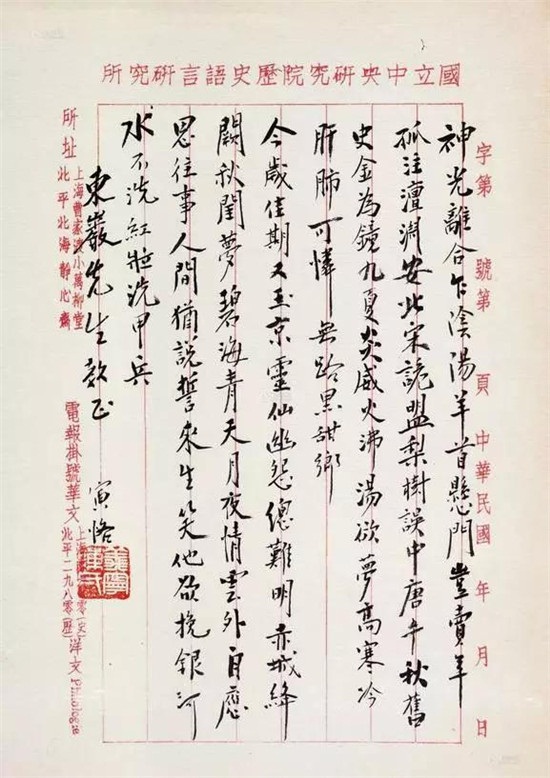 國立中央研究院歷史語言研究所
字第 號第 頁 中華民國 年 月 日
神光離合乍陰陽羊首懸門豈賣羊
孤注澶淵安北宋詭盟梨樹誤中唐千秋舊
史金為鏡九夏炎威火沸湯欲夢高寒冷
肝肺可憐無路黑甜鄉
今歲佳期又玉京靈仙幽怨總難明赤城絳
闕秋閨夢碧海青天月夜情雲外自應
思往事人間猶說誓來生笑他欲挽銀河
水不洗紅妝洗甲兵
東巖先生教正 寅恪
所址
上海曹家渡小萬柳堂
北平北海靜心齋
電報掛號華文
上海 零(史)
北平二九八零(歷)
洋文